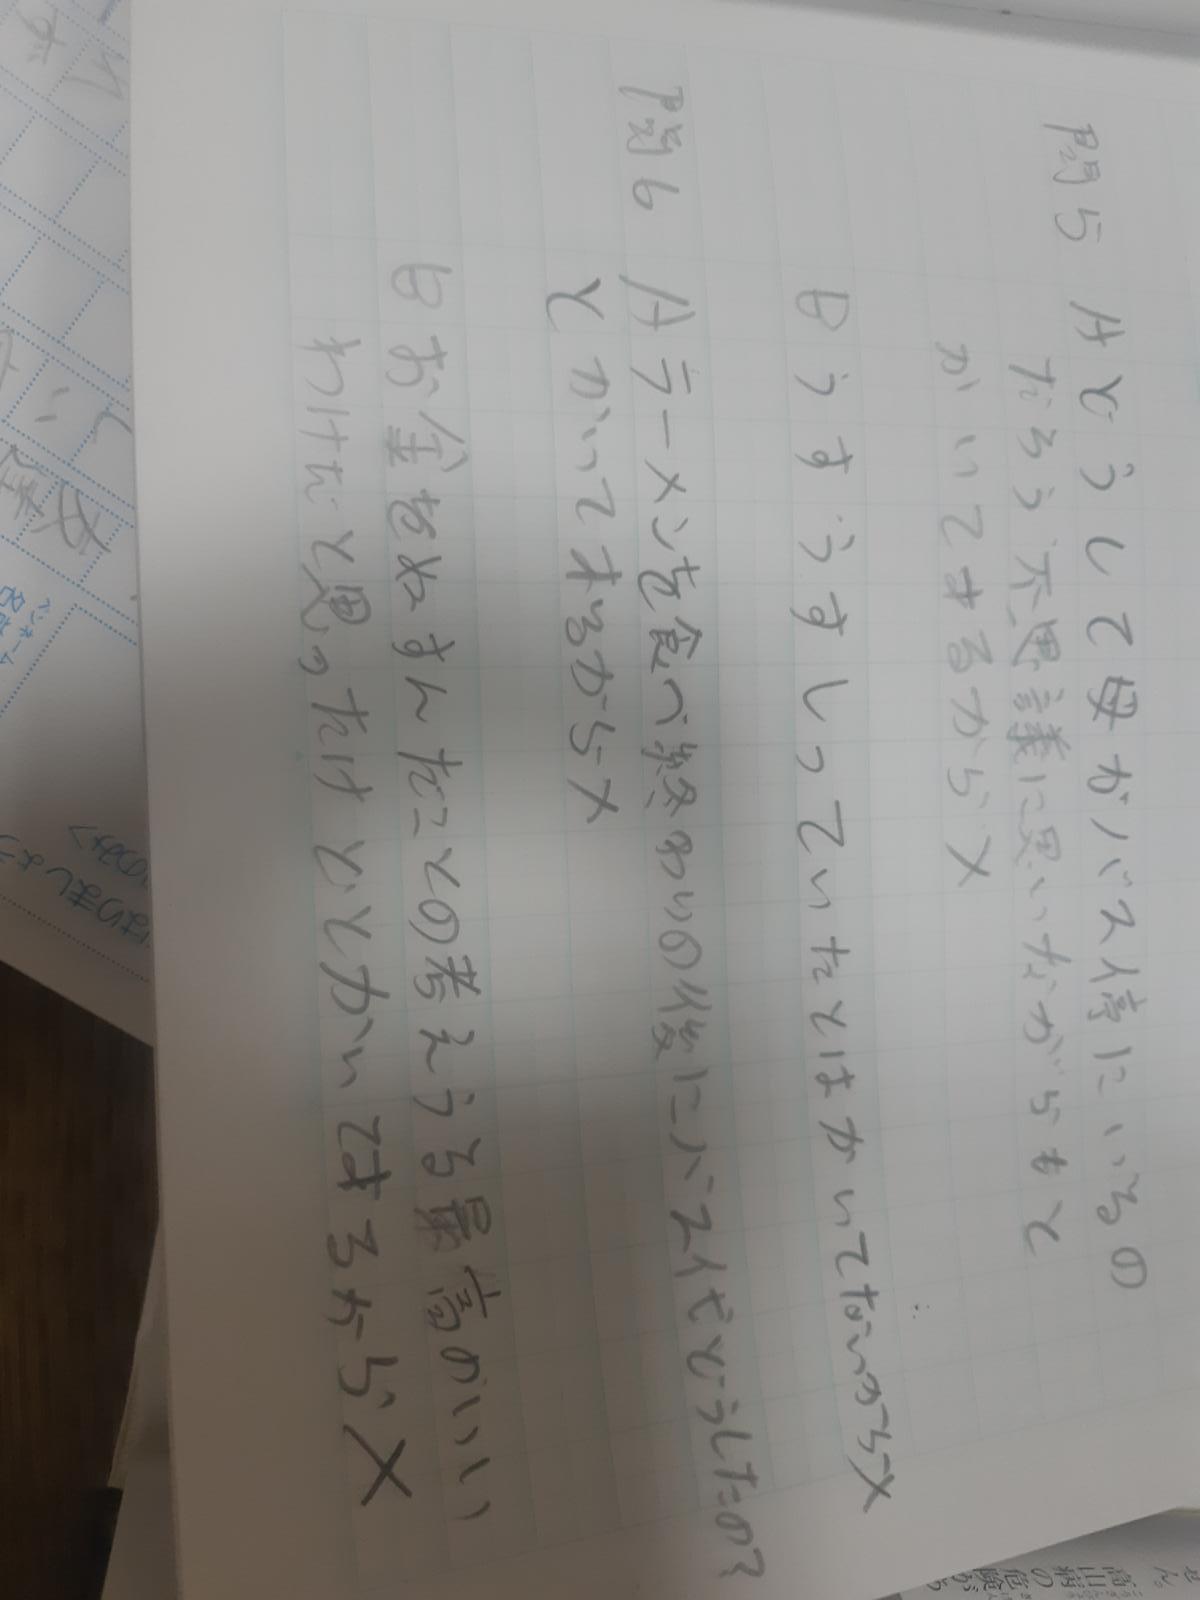 問5 Aどうして母がバス停にいるの
だろう不思議に思いながらもと
かいてあるから×
Bうすうすしっていたとはかいてないから×
問6 Aラーメンを食べ終わりの後にバス代どうしたの?
とかいてあるから×
Bお金をぬすんだことの考えうる最高のいい
わけだと思ったけどとかいてあるから×
せん。
高山病の危険が